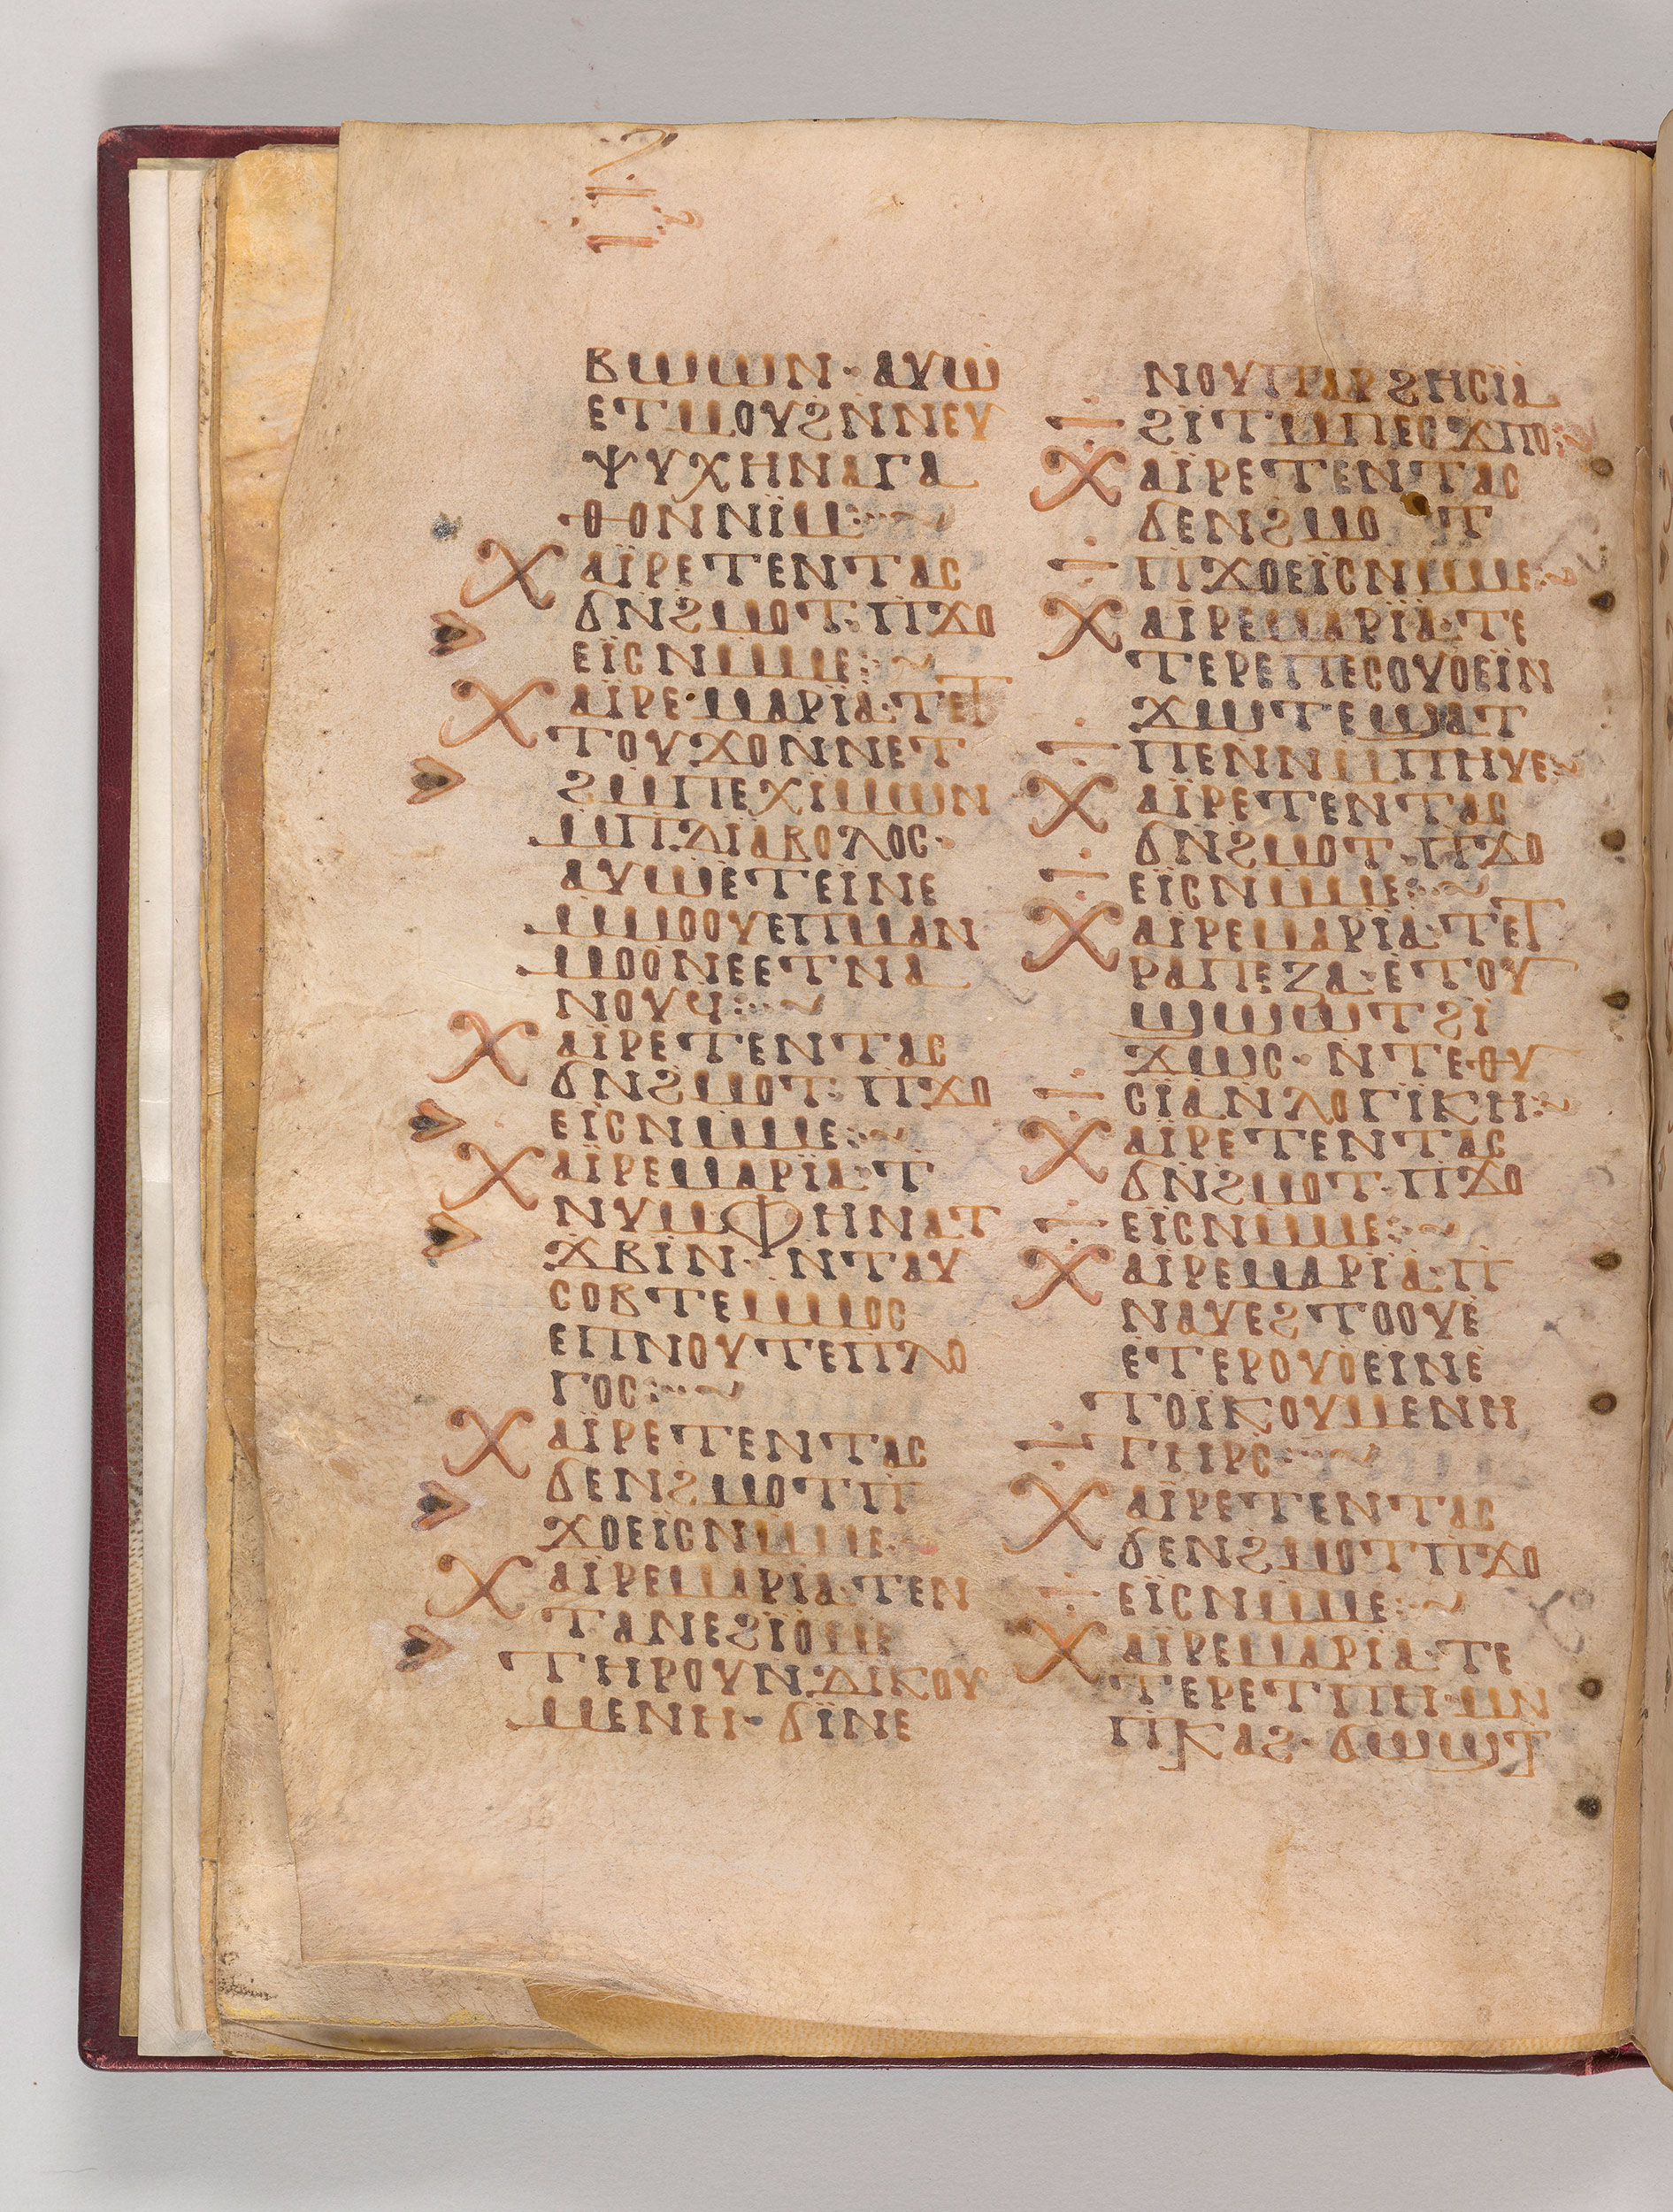 ⲃⲱⲱⲛ· ⲁⲩⲱ
ⲉⲧⲙⲟⲩϩⲛ̄ⲛⲉⲩ
ⲯⲩⲭⲏⲛⲁⲅⲁ
ⲑⲟⲛⲛⲓ̈ⲙ:~
ⲭⲁⲓ̈ⲣⲉⲧⲉⲛⲧⲁⲥ
ϭⲛ̄ϩⲙⲟⲧ: ⲡ̄ϫⲟ
ⲉⲓ̈ⲥⲛⲙ̄ⲙⲉ:~
ⲭⲁⲓ̈ⲣⲉ·ⲙⲁⲣⲓ̈ⲁ·ⲧⲉⲧ
ⲧⲟⲩϫⲟⲛⲛⲉⲧ
ϩⲙ̄ⲡⲉⲭⲓⲙⲱⲛ
ⲙ̄ⲡⲇⲓⲁⲃⲟⲗⲟⲥ·
ⲁⲩⲱⲉ̀ⲧⲉⲓ̈ⲛⲉ
ⲙ̄ⲙⲟⲟⲩⲉⲡⲙⲁⲛ
ⲙⲟⲟⲛⲉⲉⲧⲛⲁ
ⲛⲟⲩϥ:~
ⲭⲁⲓ̈ⲣⲉⲧⲉⲛⲧⲁⲥ
ϭⲛ̄ϩⲙⲟⲧ: ⲡ̄ϫⲟ
ⲉⲓ̈ⲥⲛⲙ̄ⲙⲉ:~
ⲭⲁⲓ̈ⲣⲉⲙⲁⲣⲓ̈ⲁ·ⲧ
ⲛⲩⲙⲫⲏⲛⲁⲧ
ϫⲃⲓⲛ· ⲛ̄ⲧⲁⲩ
ⲥⲟⲃⲧⲉⲙ̄ⲙⲟⲥ
ⲉⲡⲛⲟⲩⲧⲉⲡⲗⲟ
ⲅⲟⲥ:~
ⲭⲁⲓ̈ⲣⲉⲧⲉⲛⲧⲁⲥ
ϭⲉⲛϩⲙⲟⲧⲡ̄
ϫⲟⲉⲓⲥⲛⲙ̄ⲙⲉ·
ⲭⲁⲓ̈ⲣⲉⲙⲁⲣⲓ̈ⲁ·ⲧⲉⲛ
ⲧⲁⲛⲉϩⲓ̈ⲟⲙⲉ
ⲧⲏⲣⲟⲩⲛ̄ⲇⲓⲕⲟⲩ
ⲙⲉⲛⲏ· ϭⲓ̈ⲛⲉ
ⲛⲟⲩⲡⲁⲣϩⲏⲥⲓ̈ⲁ
ϩⲓ̈ⲧⲙ̄ⲡⲉⲥϫⲡⲟ:~
ⲭⲁⲓ̈ⲣⲉⲧⲉⲛⲧⲁⲥ
ϭⲉⲛϩⲙⲟ ⲧ
ⲡ̄ϫⲟⲉⲓ̈ⲥⲛⲙ̄ⲙⲉ:~
ⲭⲁⲓ̈ⲣⲉⲙⲁⲣⲓ̈ⲁ·ⲧⲉ
ⲧⲉⲣⲉⲡⲉⲥⲟⲩⲟⲉⲓ̈ⲛ
ϫⲱⲧⲉϣⲁⲧ
ⲡⲉⲛⲛⲙ̄ⲡⲏⲩⲉ:~
ⲭⲁⲓ̈ⲣⲉⲧⲉⲛⲧⲁⲥ
ϭⲛ̄ϩⲙⲟⲧ·ⲡ̄ϫⲟ
ⲉⲓ̈ⲥⲛⲙ̄ⲙⲉ:~
ⲭⲁⲓ̈ⲣⲉⲙⲁⲣⲓ̈ⲁ·ⲧⲉⲧ
ⲣⲁⲡⲉⲍⲁ·ⲉ̀ⲧⲟⲩ
ϣⲱⲱⲧϩⲓ̈
ϫⲱⲥ·ⲛ̄ⲧⲉⲑⲩ
ⲥⲓ̈ⲁⲛ̄ⲗⲟⲅⲓ̈ⲕⲏ:~
ⲭⲁⲓ̈ⲣⲉⲧⲉⲛⲧⲁⲥ
ϭⲛ̄ϩⲙⲟⲧ·ⲡ̄ϫⲟ
ⲉⲓ̈ⲥⲛⲙ̄ⲙⲉ:~
ⲭⲁⲓ̈ⲣⲉⲙⲁⲣⲓ̈ⲁ·ⲡ̄
ⲛⲁⲩⲉϩⲧⲟⲟⲩⲉ̀
ⲉ̀ⲧⲉⲣⲟⲩⲟⲉⲓⲛⲉ̀
ⲧⲟⲓ̈ⲕⲟⲩⲙⲉⲛⲏ
ⲧⲏⲣⲥ̄:~
ⲭⲁⲓ̈ⲣⲉⲧⲉⲛⲧⲁⲥ
ϭⲉⲛϩⲙⲟⲧⲡ̄ϫⲟ
ⲉⲓ̈ⲥⲛⲙ̄ⲙⲉ:~
ⲭⲁⲓ̈ⲣⲉⲙⲁⲣⲓ̈ⲁ·ⲧⲉ
ⲧⲉⲣⲉⲧⲡⲏ·ⲙⲛ
ⲡ̄ⲕⲁϩ·ϭⲱϣⲧ